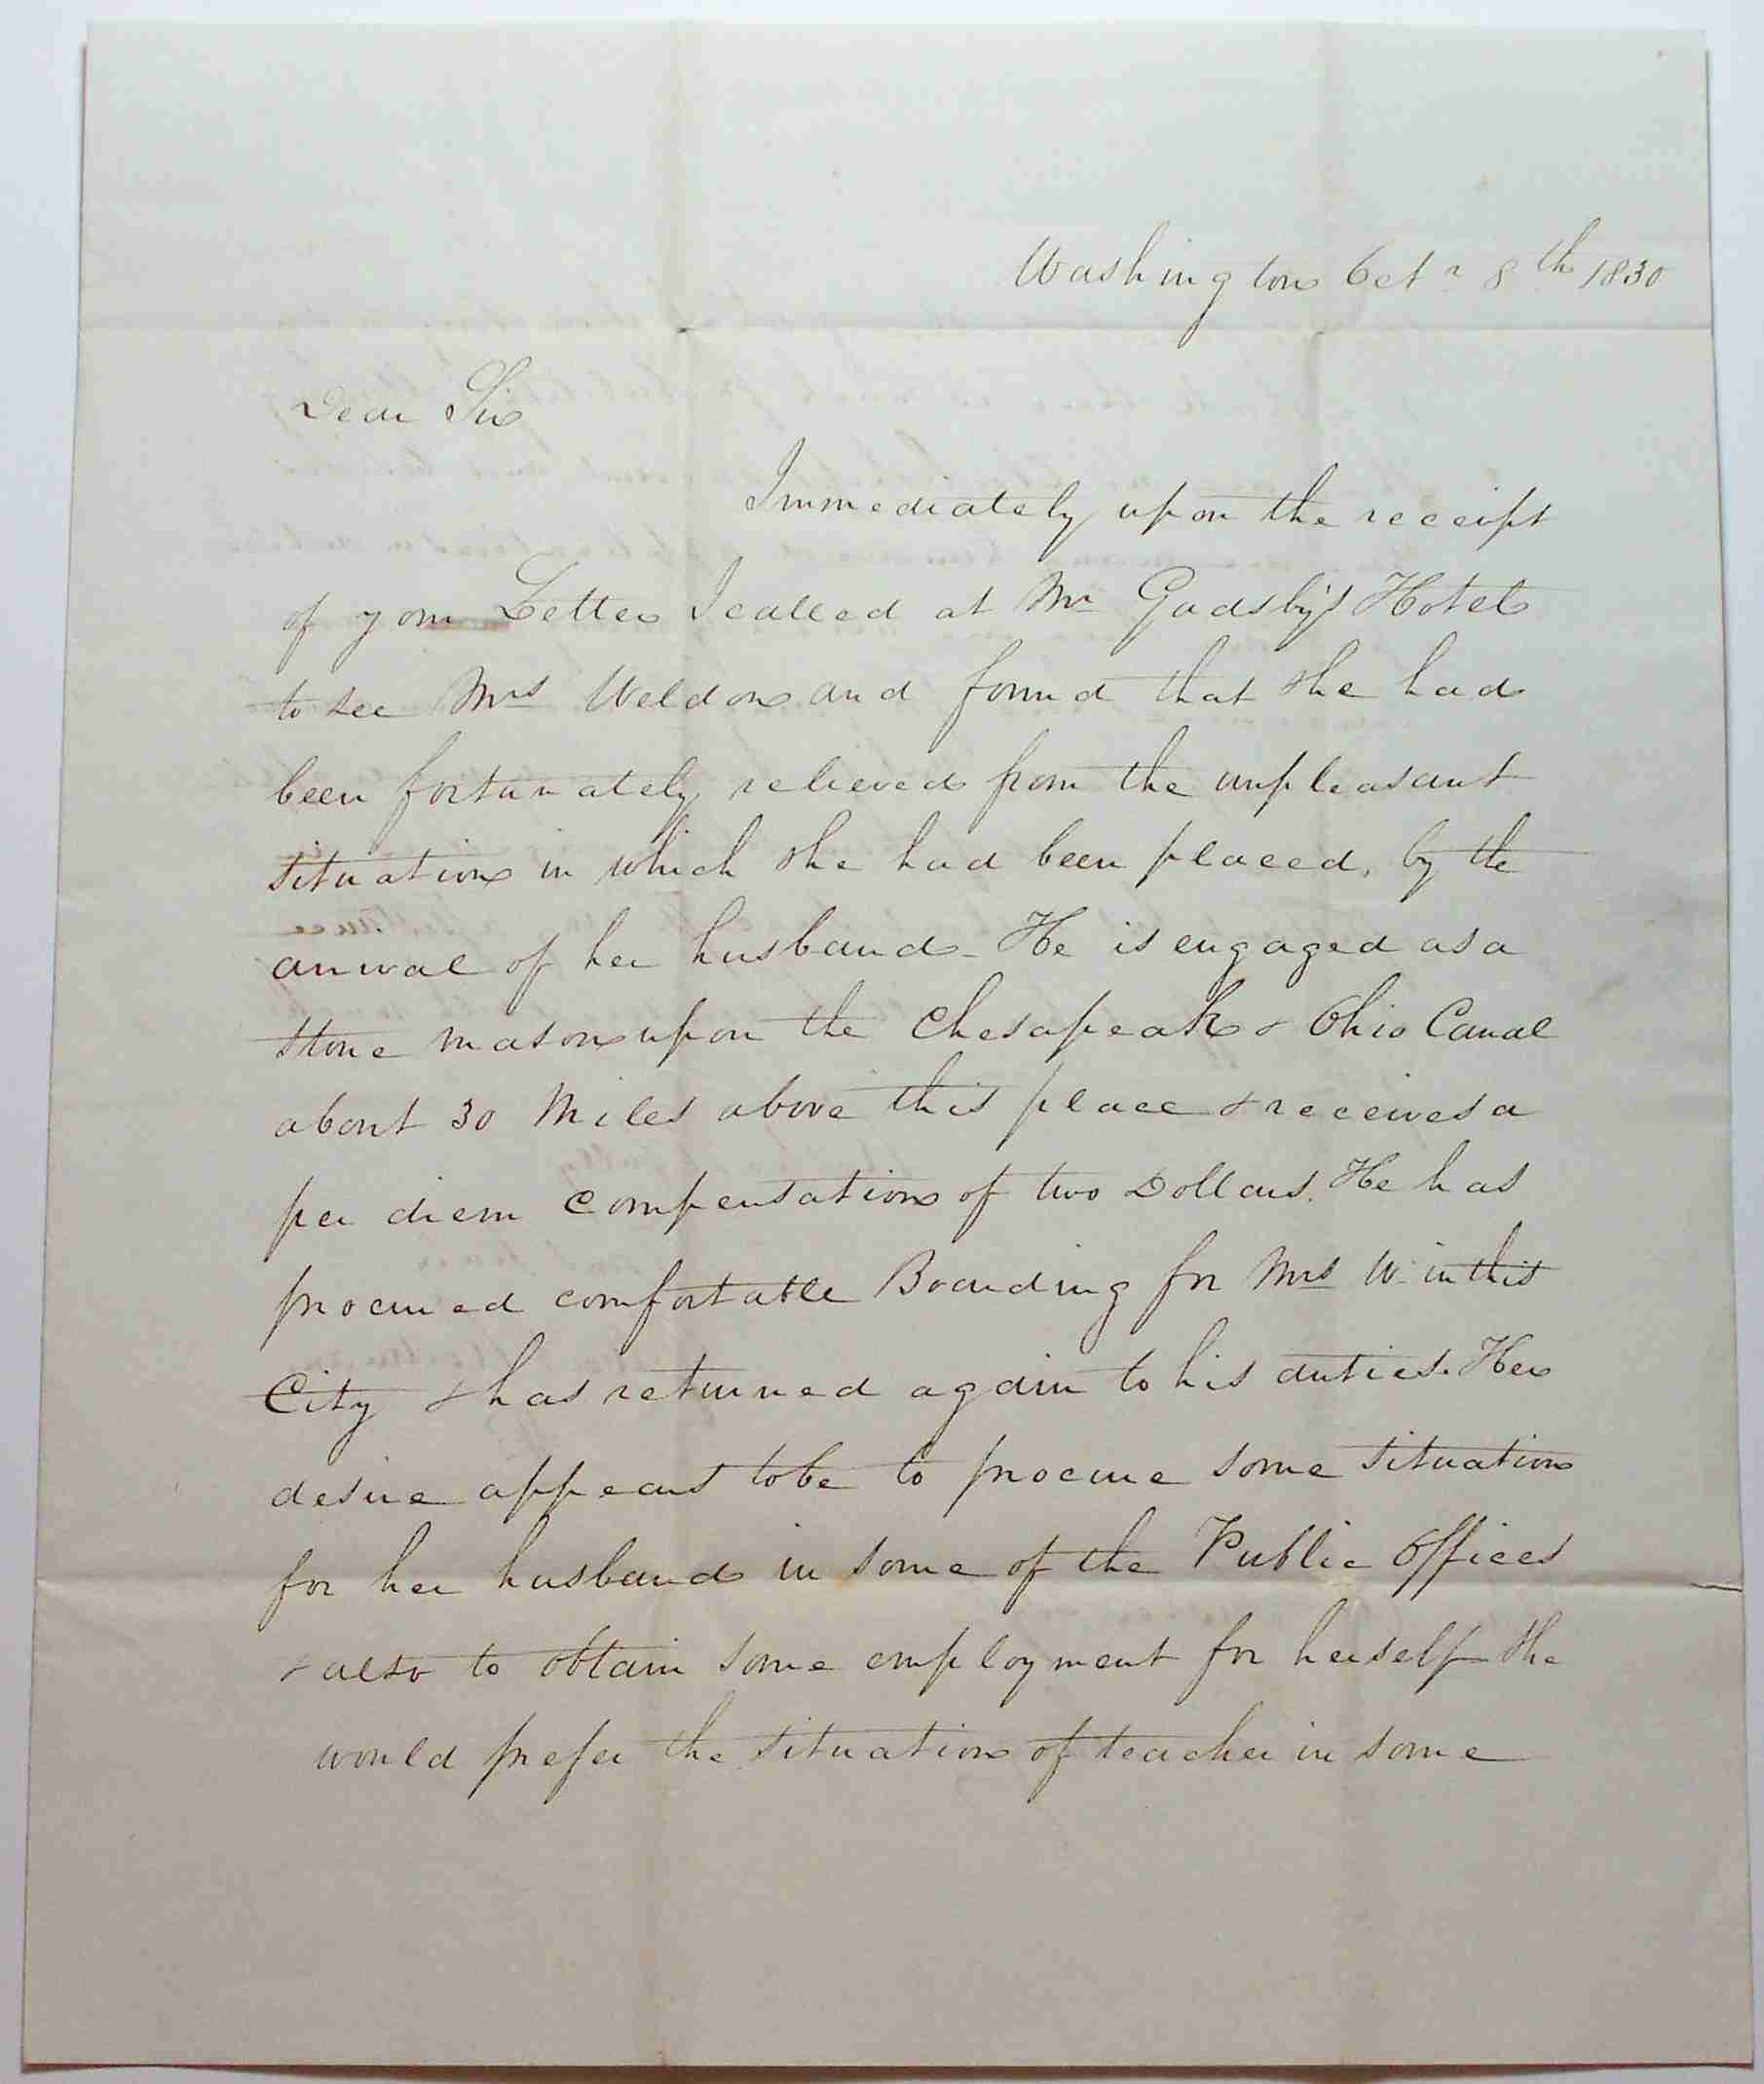 Washington Octr 8th 1830
Dear Sir
Immediately upon the receipt
of your Letter I called at Mr Gadsby's Hotel
to see Mrs Weldon and found that she had
been fortunately relieved from the unpleasant
situation in which she had been placed, by the
arrival of her husband - He is engaged as a
stone mason upon the Chesapeak & Ohio Canal
about 30 Miles above this place & receives a
per diem compensation of two Dollars. He has
procured comfortable Boarding for Mrs W. in this
City & has returned again to his duties. Her
desire appears to be to procure some situation
for her husband in some of the Public Offices
& also to obtain some employment for herself - she
would prefer the situation of teacher in some